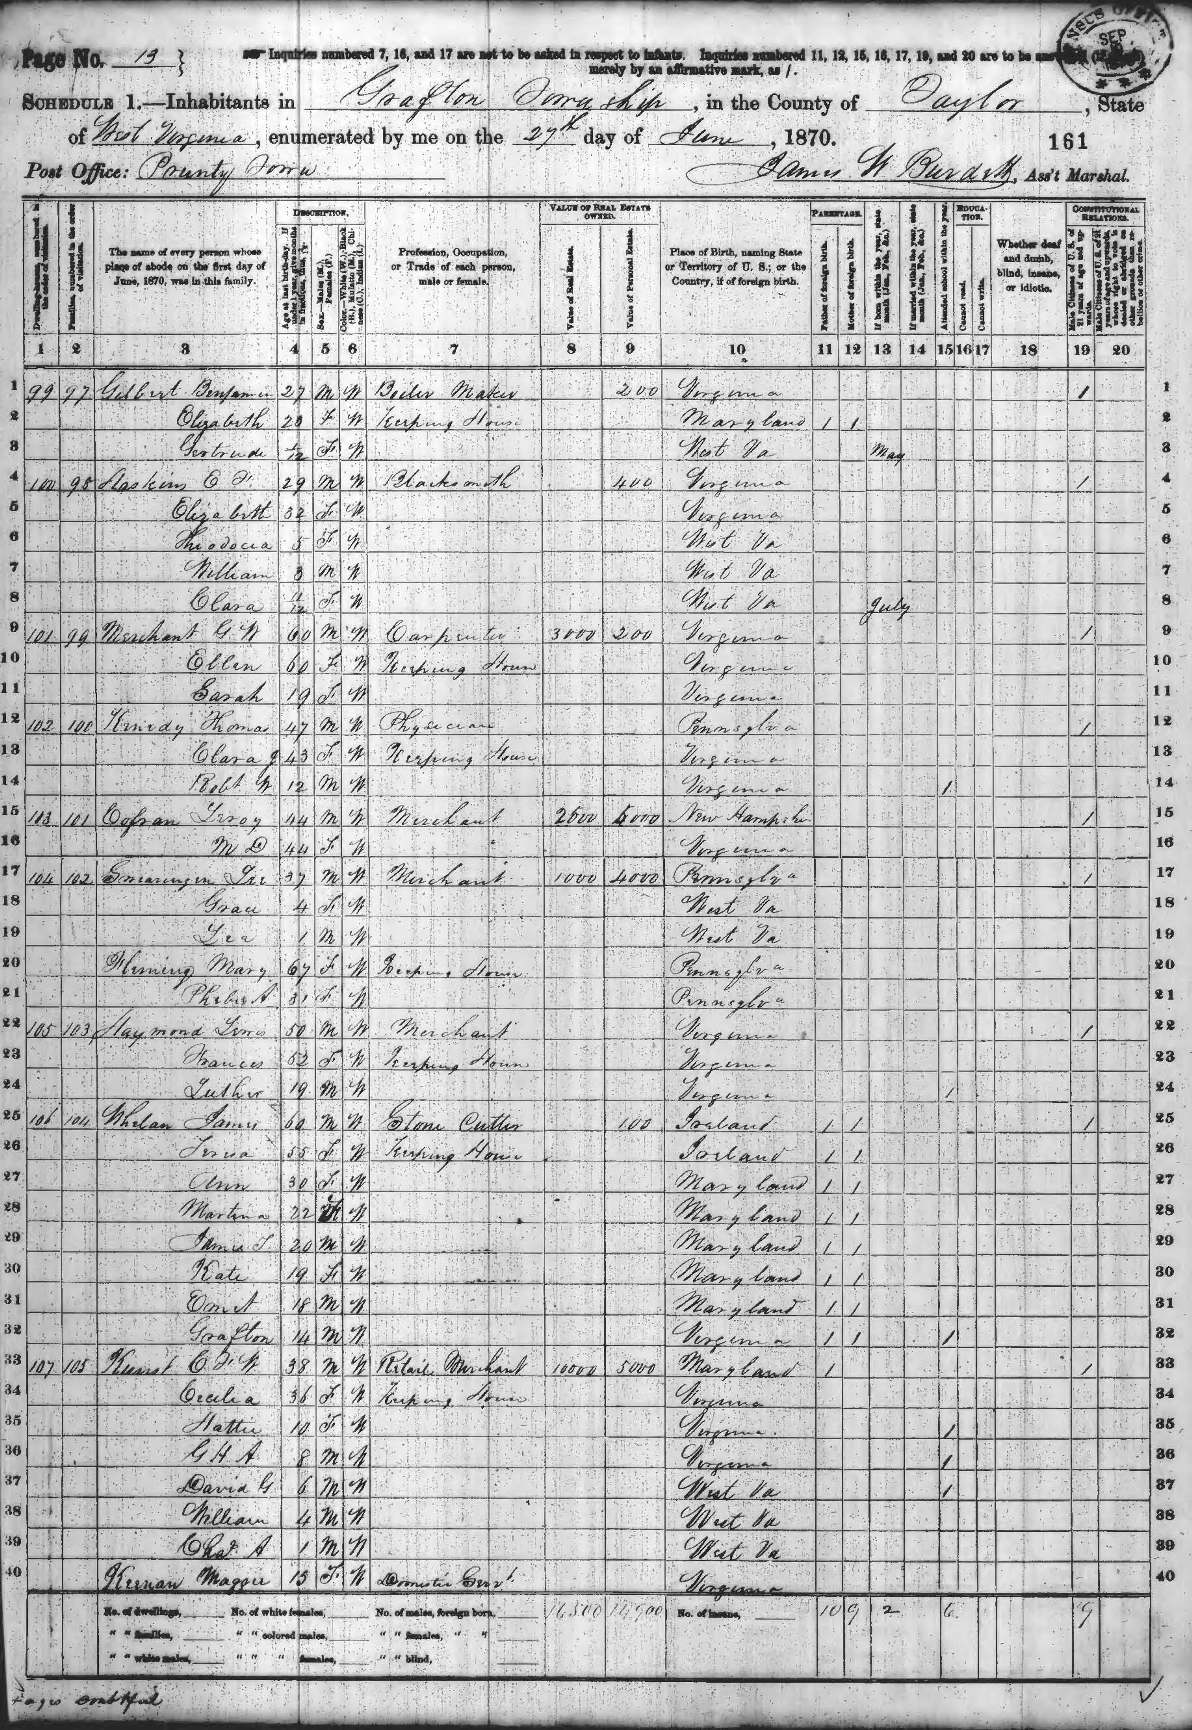 Page No. 13
Inquiries numbered 7, 16, and 17 are not to be asked in respect to infants. Inquiries numbered 11, 12, 15, 16, 17, 19, and 20 are to be
merely by an affirmative mark, as /.
SCHEDULE 1.—Inhabitants in Grafton Township, in the County of Taylor, State
of West Virginia, enumerated by me on the 27th day of June, 1870.
161
Post Office: Prunty Town
James W Burdett, Ass't Marshal.
DESCRIPTION. VALUE OF REAL ESTATE OWNED. PARENTAGE. EDUCATION. CONSTITUTIONAL RELATIONS.
Dwelling-houses, numbered in the order of visitation.
Families, numbered in the order of visitation.
The name of every person whose place of abode on the first day of June, 1870, was in this family.
Age at last birth-day. If under 1 year, give months in fractions, thus, 3/12
Sex.—Males (M.), Females (F.)
Color.—White (W.), Black (B.), Mulatto (M.), Chinese (C.), Indian (I.)
Profession, Occupation, or Trade of each person, male or female.
Value of Real Estate.
Value of Personal Estate.
Place of Birth, naming State or Territory of U. S.; or the Country, if of foreign birth.
Father of foreign birth.
Mother of foreign birth.
If born within the year, state month (Jan., Feb., &c.)
If married within the year, state month (Jan., Feb., &c.)
Attended school within the year.
Cannot read.
Cannot write.
Whether deaf and dumb, blind, insane, or idiotic.
Male Citizens of U. S. of 21 years of age and upwards.
Male Citizens of U. S. of 21 years of age and upwards, whose right to vote is denied or abridged on other grounds than rebellion or other crime.
1 2 3 4 5 6 7 8 9 10 11 12 13 14 15 16 17 18 19 20
1 99 97 Gilbert Benjamin 27 M W Boiler Maker 200 Virginia 1 1
2 Elizabeth 23 F W Keeping House Maryland 1 1 2
3 Gertrude 1/12 F W West Va May 3
4 100 98 Haskins E F 29 M W Blacksmith 400 Virginia 1 4
5 Elizabeth 32 F W Virginia 5
6 Theodocia 5 F W West Va 6
7 William 3 M W West Va 7
8 Clara 11/12 F W West Va July 8
9 101 99 Merchant G W 60 M W Carpenter 3000 200 Virginia 1 9
10 Ellen 60 F W Keeping House Virginia 10
11 Sarah 19 F W Virginia 11
12 102 100 Kenedy Thomas 47 M W Physician Pennsylva 1 12
13 Clara J 43 F W Keeping House Virginia 13
14 Robt W 12 M W Virginia 1 14
15 103 101 Cofran Leroy 44 M W Merchant 2500 5000 New Hampshr 1 15
16 M D 44 F W Virginia 16
17 104 102 Swearingen 37 M W Merchant 1000 4000 Pennsylva 1 17
18 Grace 4 F W West Va 18
19 Lea 1 M W West Va 19
20 Fleming Mary 67 F W Keeping House Pennsylva 20
21 Phebe A 31 F W Pennsylva 21
22 105 103 Haymond Lewis 50 M W Merchant Virginia 1 22
23 Frances 52 F W Keeping House Virginia 23
24 Luther 19 M W Virginia 1 24
25 106 104 Whelan James 60 M W Stone Cutter 100 Ireland 1 1 1 25
26 Teresa 55 F W Keeping House Ireland 1 1 26
27 Ann 30 F W Maryland 1 1 27
28 Martina 22 F W Maryland 1 1 28
29 James T. 20 M W Maryland 1 1 29
30 Kate 19 F W Maryland 1 1 30
31 Emet 18 M W Maryland 1 1 31
32 Grafton 14 M W Virginia 1 1 1 32
33 107 105 Kunst C F W 38 M W Retail Merchant 10000 5000 Maryland 1 1 33
34 Cecelia 36 F W Keeping House Virginia 34
35 Hattie 10 F W Virginia 1 35
36 G H A 8 M W Virginia 1 36
37 David G 6 M W West Va 1 37
38 William 4 M W West Va 38
39 Chas. A 1 M W West Va 39
40 Keenan Maggie 15 F W Domestic Servt. Virginia 40
No. of dwellings, No. of white females, No. of males, foreign born, 16500 14900 No. of insane, 10 9 2 6 9
" " families, " " colored males, " " females, " "
" " white males, " " " females, " " blind,
ages doubtful